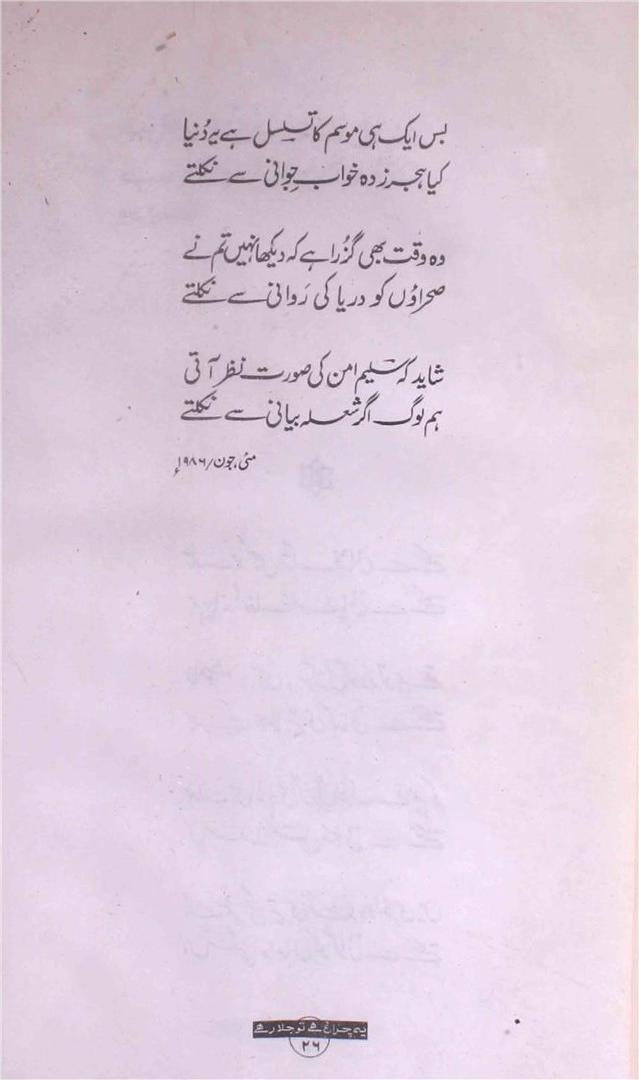 بس ایک ہی موسم کا تسلسل ہے یہ دُنیا
کیا ہجر زدہ خواب جوانی سے نکلتے
وہ وقت بھی گُزرا ہے کہ دیکھا نہیں تم نے
صحراؤں کو دریا کی رَوانی سے نکلتے
شاید کہ سلیم امن کی صورت نظر آتی
ہم لوگ اگر شعلہ بیانی سے نکلتے
مئی، جون/۱۹۸۶ء
یہ چراغ ہے تو جلا رہے
۲۶